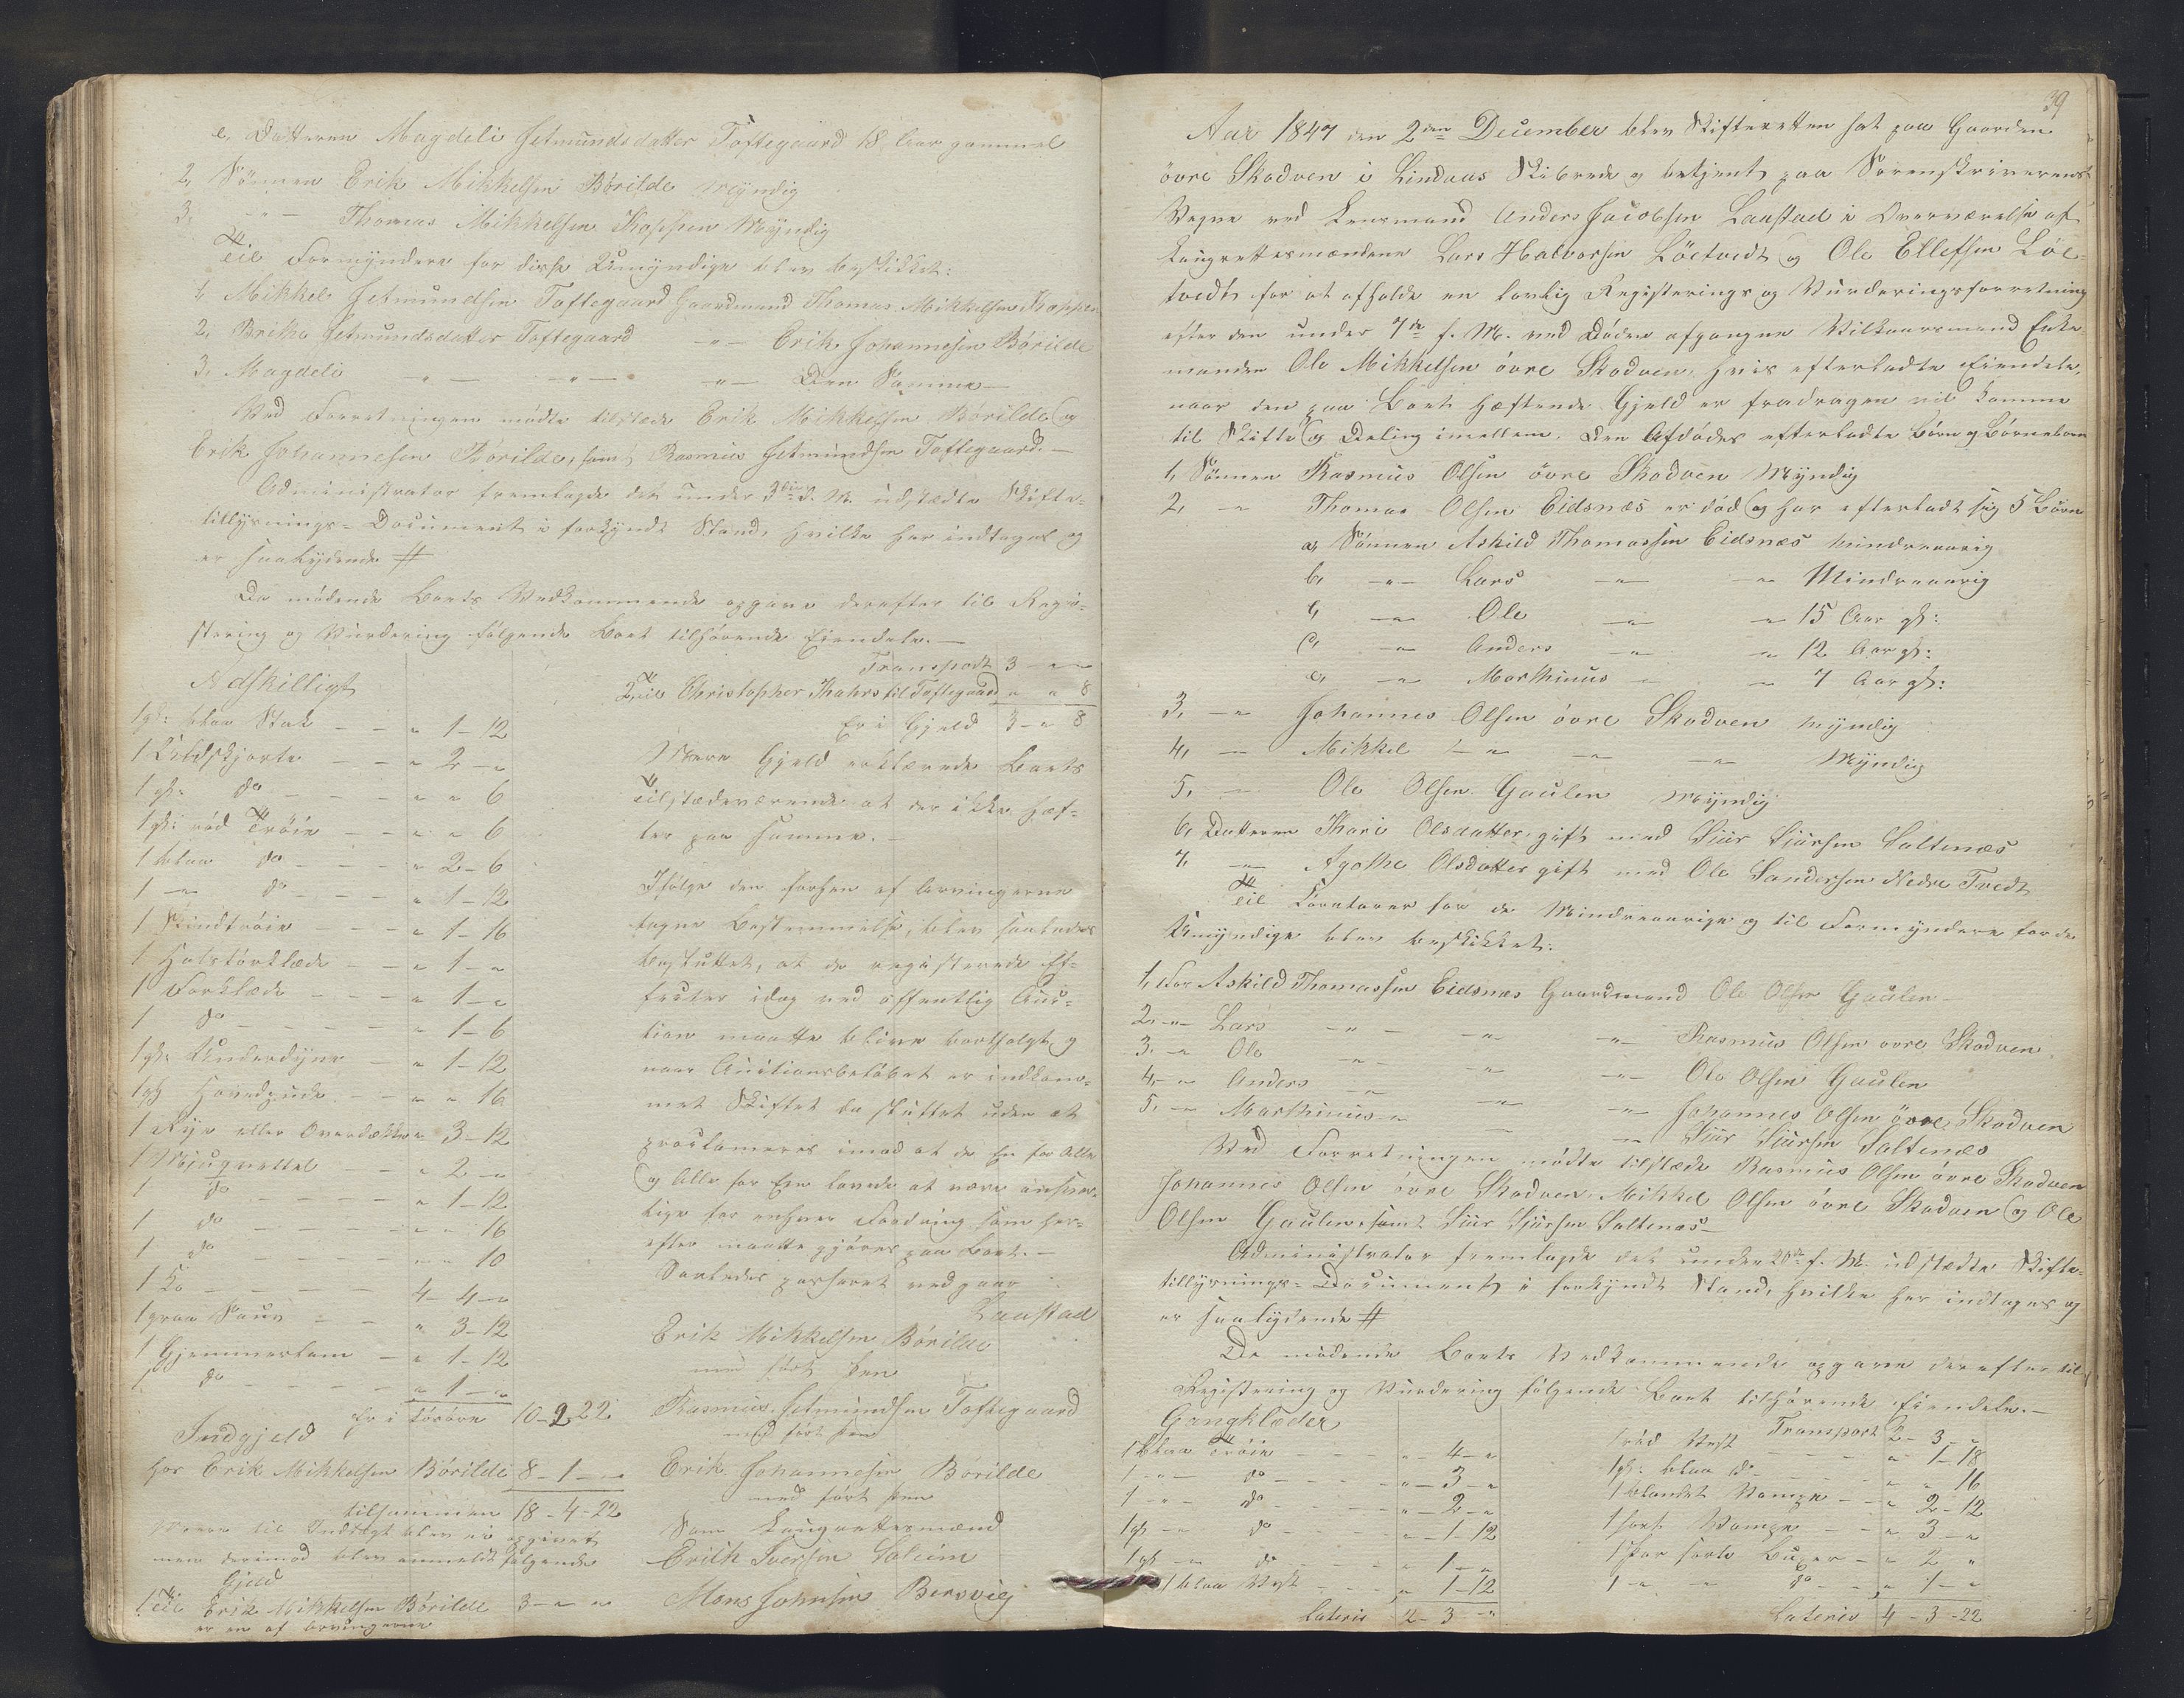 e, Datteren Magdeli Jetmundsdatter Toftegaard 18 Aar gammel
2, Sönnen Erik Mikkelsen Börilde Myndig
3, -"- Thomas Mikkelsen Koppen Myndig
Til Formyndere for disse Umyndige blev beskikket:
1, Mikkel Jetmundsen Toftegaard Gaardmand Thomas Mikkelsen Koppen
2, Britha Jetmundsdatter Toftegaard -"- Erik Johannesen Börilde
3, Magdeli -"- -"- -"- Den Samme
Ved Forretningen mödte tilstæde Erik Mikkelsen Börilde og
Erik Johannesen Börilde, samt Rasmus Jetmundsen Toftegaard. —
Administrator fremlagde det under f. M. udstædte Skifte-
tillysnings-Document i forkyndt Stand, hvilke her indtages og
er saalydende #
De mödende Boets Vedkommende opgave derefter til Regi-
stering og Vurdering fölgende Boet tilhörende Eiendele. —
Adskilligt
1 gl: blaa Stak — — " 1-12
1 Uldskjorte — — " 2 - "
1 gl: do — — " " 6
1 gl: röd Tröie — — " " 6
1 blaa do — — " 2-6
1 -"- do — — " 1-12
1 Skindtröie — — " 1-16
1 Halstörklæde — — " 1-"
1 Forklæde — — " 1-"
1 do — — " 1-6
1 gl: Underdyne — " 1-12
1 gl Hovedpude — — " " 16
1 Rye eller Overdække " 3-12
1 Mjugvettel — — " 2-"
1 do — — " 1-12
1 do — — " " 16
1 do — — " " 10
1 Ko — — 4-4-"
1 graa Sauv — — " 3-12
1 Gjemmerlam — " 1-12
1 do — — " 1-"
Er i Lösöre 10-2-22
Indgjeld
hos Erik Mikkelsen Börilde 8-1-"
tilsammen 18-4-22
Mere til Indtægt blev ei opgivet
men derimod blev anmeldt fölgende
Gjeld
1 Til Erik Mikkelsen Börilde 3-"-"
er en af Arvingerne
Transport 3-"-"
2, Til Christopher til Toftegaard " " 8
Er i Gjeld 3-"-8
Mere Gjeld erklærede Boets
Tilstædeværende at der ikke hæf-
ter paa samme. —
Ifölge den forhen af Arvingerne
tagne Bestemmelse, blev saaledes
besluttet, at de registerede Ef-
fecter idag ved offentlig Auc-
tion maatte blive bortsolgt og
naar Auctionsbelöbet er indkom-
met Skiftet da sluttet uden at
proclameres imod at de En for Alle
og Alle for Een lovede at være ansvar-
lige for enhver Fordring som her-
efter maatte gjöres paa Boet. —
Saaledes passeret vedgaar
Laustad
Erik Mikkelsen Börilde
med fört Pen
Rasmus Jetmundsen Toftegaard
med fört Pen
Erik Johannesen Börilde
med fört Pen
Som Laugrettesmænd
Erich Iversen Soleim
Mons Johnsen Bersvig
39
Aar 1847 den 2den December blev Skifteretten sat paa Gaarden
övre Skodven i Lindaas Skibrede og betjent paa Sorenskriverens
Vegne ved Lensmand Anders Jacobsen Laustad i Overværelse af
Laugrettesmændene Lars Halvorsen Löctvedt og Ole Ellefsen Löc-
tvedt for at afholde en lovlig Registerings og Vurderingsforretning
efter den under 7de f. M. ved Döden afgangne Vilkaarsmand Enke-
manden Ole Mikkelsen övre Skodven, hvis efterladte Eiendele,
naar den paa Boet hæftende Gjeld er fradragen vil komme
til Skifte og Deling imellem. Den Afdödes efterladte Börn og Börnebörn
1, Sönnen Rasmus Olsen övre Skodven Myndig
2, -"- Thomas Olsen Eidsnæs er död og har efterladt sig 5 Börn
a, Sönnen Askild Thomassen Eidsnæs Mindreaarig
b, -"- Lars -"- -"- Mindreaarig
c, -"- Ole -"- -"- 15 Aar gl:
d, -"- Anders -"- -"- 12 Aar gl:
e, -"- Marthinus -"- -"- 7 Aar gl:
3, -"- Johannes Olsen övre Skodven Myndig
4, -"- Mikkel -"- -"- -"- Myndig
5, -"- Ole Olsen Gaulen Myndig
6, Datteren Kari Olsdatter gift med Siur Siursen Saltenæs
7, -"- Agathe Olsdatter gift med Ole Sandersen Nedre Tvedt
Til Curatorer for de Mindreaarige og til Formyndere for de
Umyndige blev beskikket:
1, For Askild Thomassen Eidsnæs Gaardmand Ole Olsen Gaulen —
2, -"- Lars -"- -"- -"- Rasmus Olsen övre Skodven
3, -"- Ole -"- -"- -"- Ole Olsen Gaulen
4, -"- Anders -"- -"- -"- Johannes Olsen övre Skodven
5, -"- Marthinus -"- -"- -"- Siur Siursen Saltenæs
Ved Forretningen mödte tilstæde Rasmus Olsen övre Skodven
Johannes Olsen övre Skodven, Mikkel Olsen övre Skodven og Ole
Olsen Gaulen, samt Siur Siursen Saltenæs —
Administrator fremlagde det under 20de f. M. udstædte Skifte-
tillysnings-Document i forkyndt Stand, hvilke her indtages og
er saalydende #
De mödende Boets Vedkommende opgave derefter til
Registering og Vurdering fölgende Boet tilhörende Eiendele. —
Gangklæder
1 blaa Tröie — — " 4-"
1 -"- do — — " 3-"
1 -"- do — — " 2-"
1 gl -"- do — — " 1-12
1 gl -"- do — — " 1-"
1 blaa Vest — — " 1-12
Lateris 2-3-"
Transport 2-3-"
1 röd Vest — — " 1-18
1 gl: blaa do — — " " 16
1 blandet Vampe — — " 2-12
1 sort Vampe — — " 3-"
1 Par sorte Buxer — " 2 "
1 -"- -"- do — " 1-"
Lateris 4-3-22